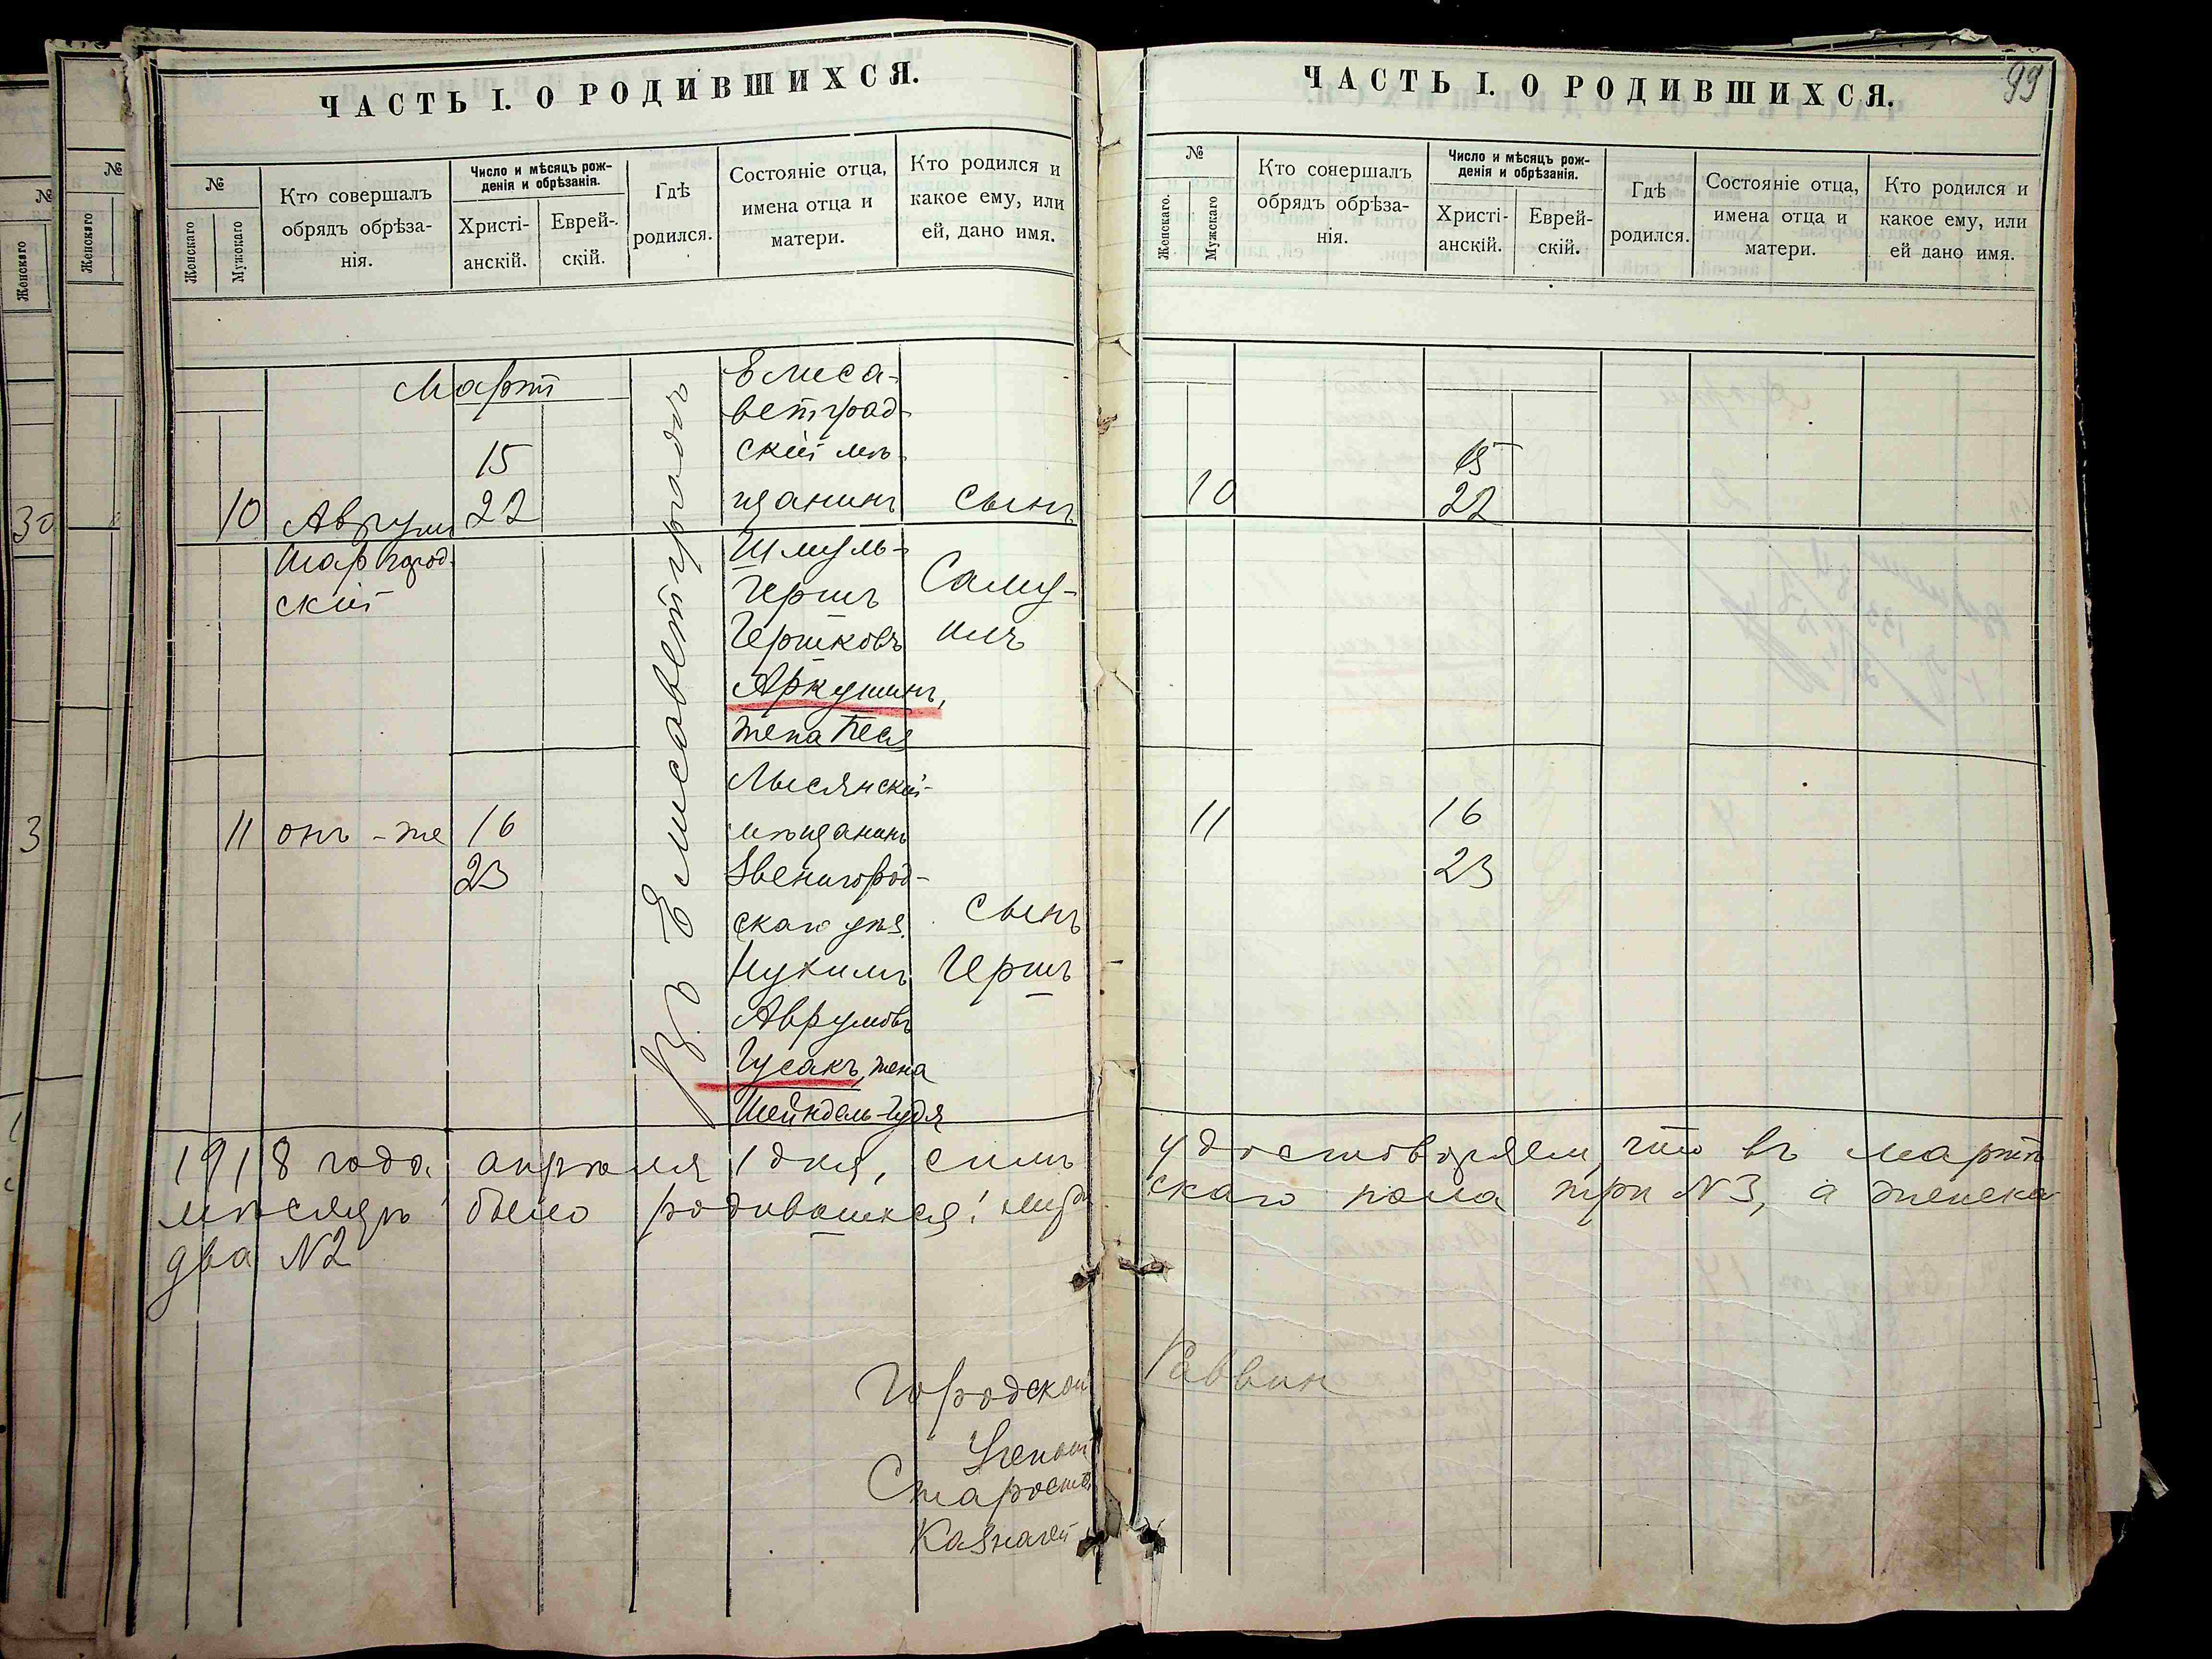 ЧАСТЬ I. О РОДИВШИХСЯ.
№
Женскаго
Мужскаго
Кто совершалъ обрядъ обрѣза-
нія.
Число и мѣсяцъ рож-
денія и обрѣзанія.
Христі-
анскій.
Еврей-
скій.
Гдѣ
родился.
Состояніе отца,
имена отца и
матери.
Кто родился и
какое ему, или
ей, дано имя.
Мартъ
10
Аврумъ
Шаргород-
скій
15
22
Въ Елисаветградѣ
Елиса-
ветград-
скій мѣ-
щанинъ
Шмуль-
Гершъ
Гершковъ
Аркушинъ,
жена Песя
сынъ
Саму-
илъ
11
онъ-же
16
23
Лысянскій
мѣщанинъ
Звенигород-
скаго уѣз.
Нухимъ
Аврумовъ
Гусакъ, жена
Шейндель-Гудя
сынъ
Гершъ
1918 года апрѣля 1 дня, симъ
мѣсяцѣ было родившихся: муж
два №2
Городской
Ученый
Староста
Казначей
ЧАСТЬ I. О РОДИВШИХСЯ.
99
№
Женскаго.
Мужскаго
Кто совершалъ
обрядъ обрѣза-
нія.
Число и мѣсяцъ рож-
денія и обрѣзанія.
Христі-
анскій.
Еврей-
скій.
Гдѣ
родился.
Состояніе отца,
имена отца и
матери.
Кто родился и
какое ему, или
ей дано имя.
10
15
22
11
16
23
удостовѣряемъ, что въ мартѣ
скаго пола три №3, а женска
Раввин
№
Женскаго
30
3
№
Женскаго